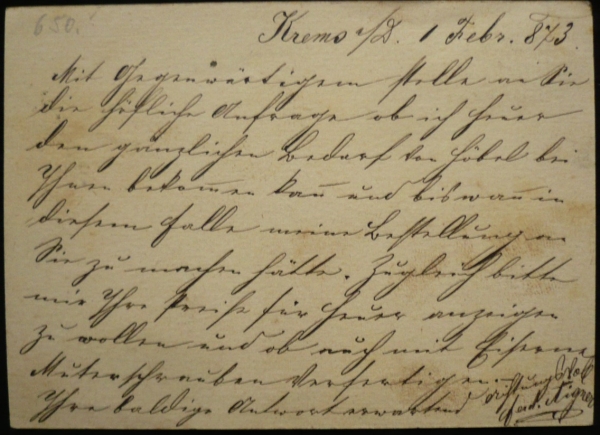 650.
Krems a/D. 1 Febr. 873.
Mit Gegenwärtigem stelle an Sie
die höfliche Anfrage ob ich heuer
den gänzlichen Bedarf von Höbel bei
Ihnen bekommen kann und bis wann in
diesem Falle meine Bestellung an
Sie zu machen hätte. Zugleich bitte
mir Ihre Preise für heuer anzeigen
zu wollen und ob auch mit Eiserne
Mutterschrauben verfertigen.
Ihre baldige Antwort erwartend